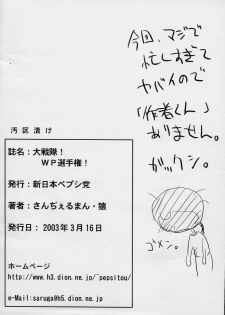 今回、マジで
忙しすぎて
ヤバイので
「作者くん」
ありません。
ガックシ。
ゴメン。
汚区漬け
誌名：大戦隊！
WP選手権！
発行：新日本ペプシ党
著者：さんぢぇるまん・猿
発行日：2003年3月16日
ホームページ
http://www.h3.dion.ne.jp/~pepsitou/
e-Mail:saruga@h5.dion.ne.jp